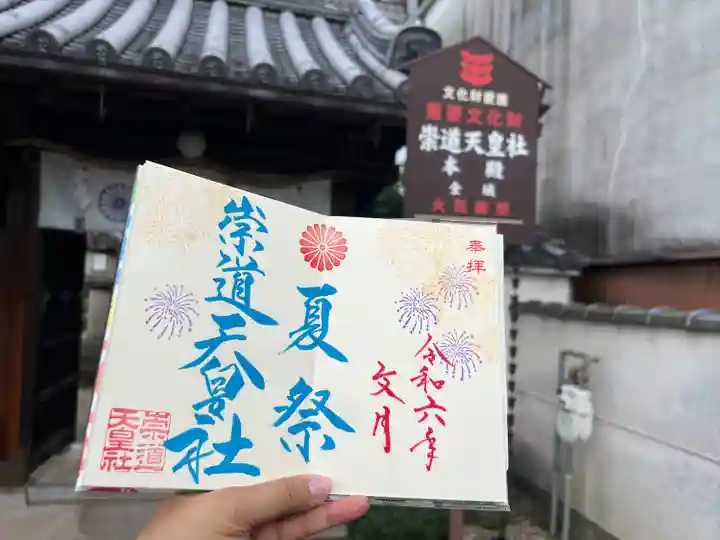 文化財愛護
重要文化財
崇道天皇社
本殿
全域
火気厳禁
奉拝
令和六年
文月
夏祭
崇道天皇社
崇道
天皇社